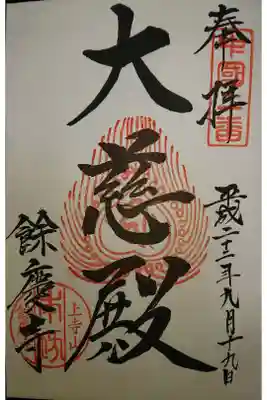 奉拝
平成二十三年九月十九日
大慈殿
上寺山
餘慶寺